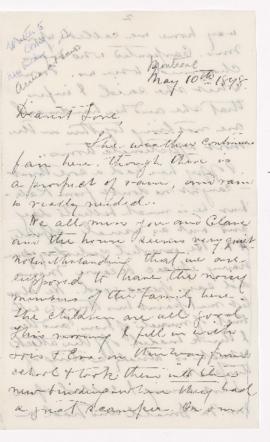 Montreal
May 10th 1898.
Dearest Love,
The weather continues
fair here, though there is
a prospect of rain, and rain
is really needed.
We all miss you and Clare
and the house seems very quiet
notwithstanding that we are
supposed to have the noisy
members of the family here.
The children are all good
This morning I fell in with
Lois & Eva on their way from
school & took them into their
new building where they had
a great scamper. On our